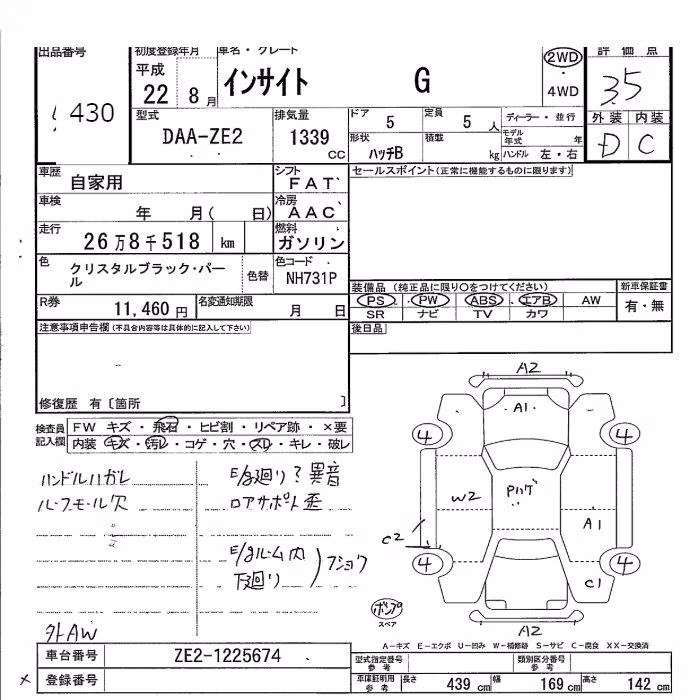 出品番号 初度登録年月 車名・グレード 評価点
430
平成 22 8月 インサイト G 2WD ・ 4WD 3.5
型式 排気量 ドア 定員 ディーラー・並行 外装 内装
DAA-ZE2 1339 CC 5 5人 モデル年式 年 D C
形状 積載 ハッチB kg ハンドル 左・右
車歴 自家用 シフト FAT セールスポイント(正常に機能するものに限ります)
車検 年 月( 日) 冷房 AAC
走行 26万8千518 km 燃料 ガソリン
色 クリスタルブラック・パール 色替 色コード NH731P
装備品 (純正品に限り○をつけてください) 新車保証書
PS PW ABS エアB AW 有・無
SR ナビ TV カワ
R券 11,460円 名変通知期限 月 日
注意事項申告欄(不具合内容等は具体的に記入して下さい) 後日品
修復歴 有〔箇所 〕
検査員記入欄 FW キズ・飛石・ヒビ割・リペア跡・×要
内装 キズ・汚レ・コゲ・穴・スレ・キレ・破レ
ハンドルハガレ
ルーフモール欠
E/g廻り?異音
ロアサポート歪
E/gルーム内
下廻り
フショク
外AW
A2
A1
4 4
W2 Pハゲ
A1
C2
4 4
C1
A2
ポンプ
スペア
A-キズ E-エクボ U-凹み W-補修跡 S-サビ C-腐食 XX-交換済
車台番号 ZE2-1225674
型式指定番号 参考 類別区分番号 参考
登録番号
車庫証明用 参考 長さ 439cm 幅 169cm 高さ 142cm